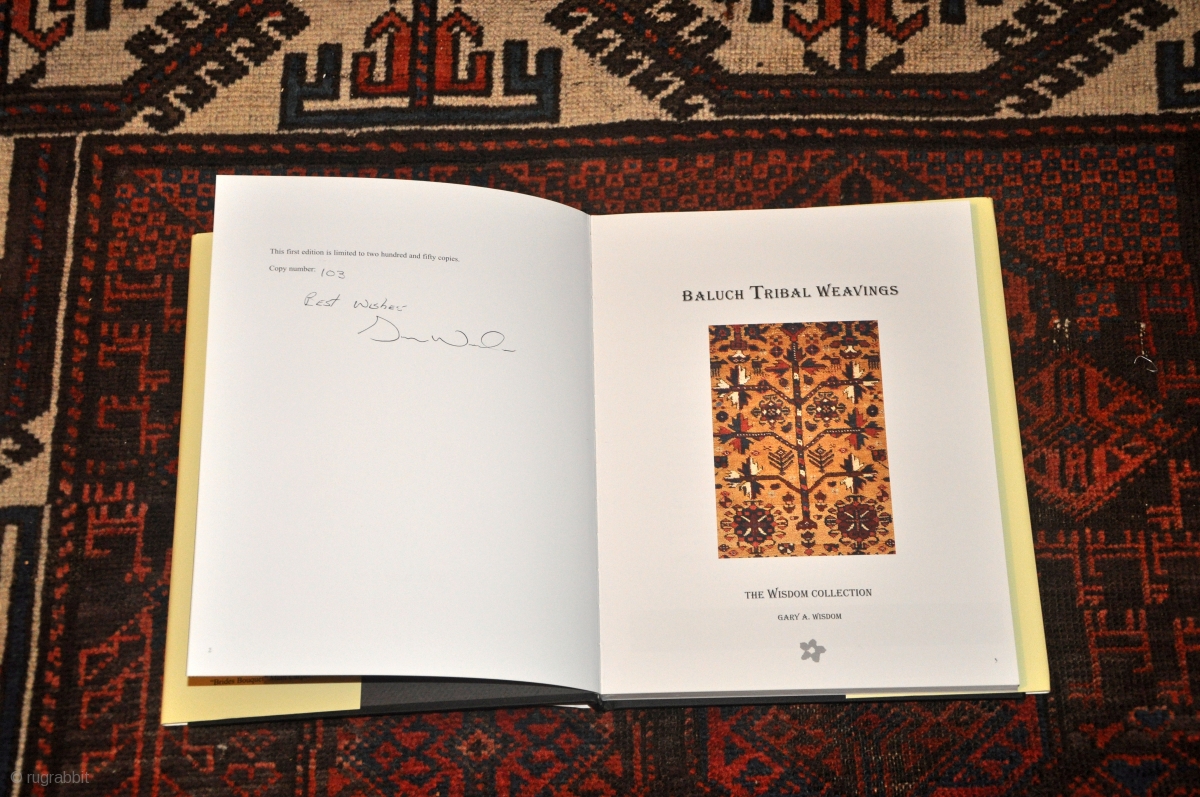 This first edition is limited to two hundred and fifty copies.
Copy number: 103
Best Wishes
BALUCH TRIBAL WEAVINGS
THE WISDOM COLLECTION
GARY A. WISDOM
© rugrabbit